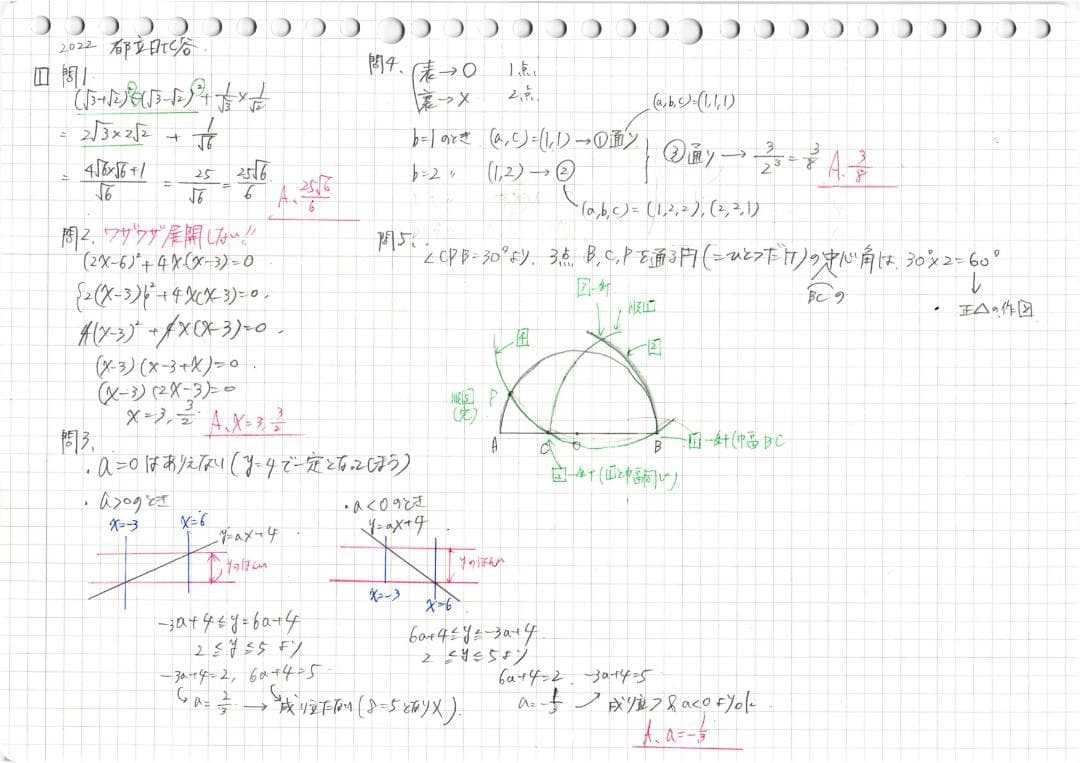 2022 都立日比谷.
1 問1
(√3+√2)²-(√3-√2)² + 1/√3 × 1/√2
= 2√3×2√2 + 1/√6
= (4√6×√6+1)/√6 = 25/√6 = 25√6/6
A. 25√6/6
問2. ワザワザ展開しない!!
(2x-6)²+4x(x-3)=0
{2(x-3)}²+4x(x-3)=0.
4(x-3)²+4x(x-3)=0.
(x-3)(x-3+x)=0.
(x-3)(2x-3)=0
x=3, 3/2.
A. x=3, 3/2
問3.
・a=0はありえない(y=4で一定となってしまう)
・a>0のとき
x=-3
x=6
y=ax+4
yのはんい
-3a+4≦y≦6a+4
2≦y≦5より
-3a+4=2, 6a+4=5
a=2/3 → 成り立たない(8=5となりX).
・a<0のとき
y=ax+4
yのはんい
x=-3
x=6
6a+4≦y≦-3a+4
2≦y≦5より
6a+4=2, -3a+4=5
a=-1/3 成り立つ&a<0よりok
A. a=-1/3
問4. 表→0 1点
裏→X 2点
(a,b,c)=(1,1,1)
b=1のとき (a,c)=(1,1)→①通り
b=2 〃 (1,2)→②
③通り → 3/2³ = 3/8
A. 3/8
(a,b,c)=(1,2,2),(2,2,1)
問5.
∠CPB=30°より. 3点B,C,Pを通る円(=ひとつだけ)の中心角は、30°×2=60°
BCの
・正△の作図
3-針
4
2
P
A
C
O
B
1-針(巾番BC
2-針(1と巾番同い)